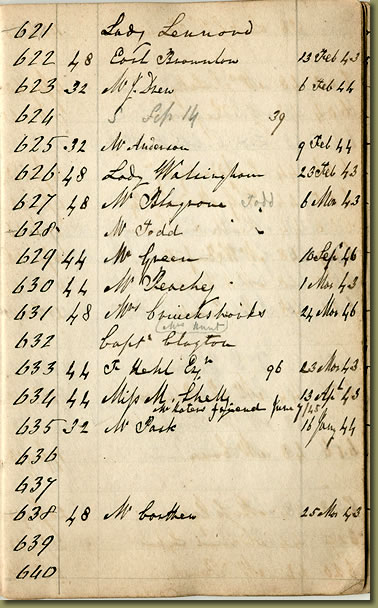 621 Lady Lennard
622 48 Earl Brownlow 13 Feb 43
623 32 Mr J. Drew 6 Feb 44
624 5 Sep 14 39
625 32 Mr Anderson 9 Feb 44
626 48 Lady Walsingham 23 Feb 43
627 48 Mr Blagrove Todd 6 Mar 43
628 Mr Todd
629 44 Mr Green 10 Sep 46
630 44 Mr Peachey 1 Mar 43
631 48 Mrs 24 Mar 46
(Mrs Hunt)
632 Capt Clayton
633 44 F Kehl Esqr 96 23 Mar 43
634 44 Miss M. Shelly 13 Apl 43
friend June 7/45
635 32 Mr Pask 16 Jany 44
636
637
638 48 Mr 25 Mar 43
639
640